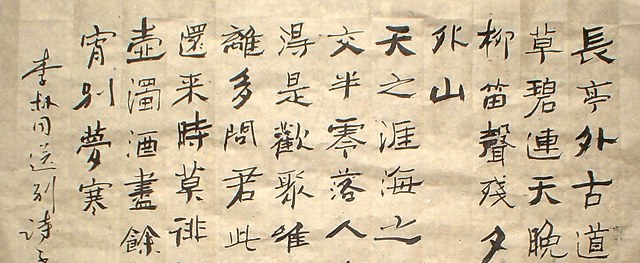 長亭外古道
草碧連天晚
柳笛聲殘夕
外山
天之涯海之
交半零落人
得是歡聚唯
離多問君此
還来時莫徘
壺濁酒盡餘
宵别夢寒
李叔同送别诗